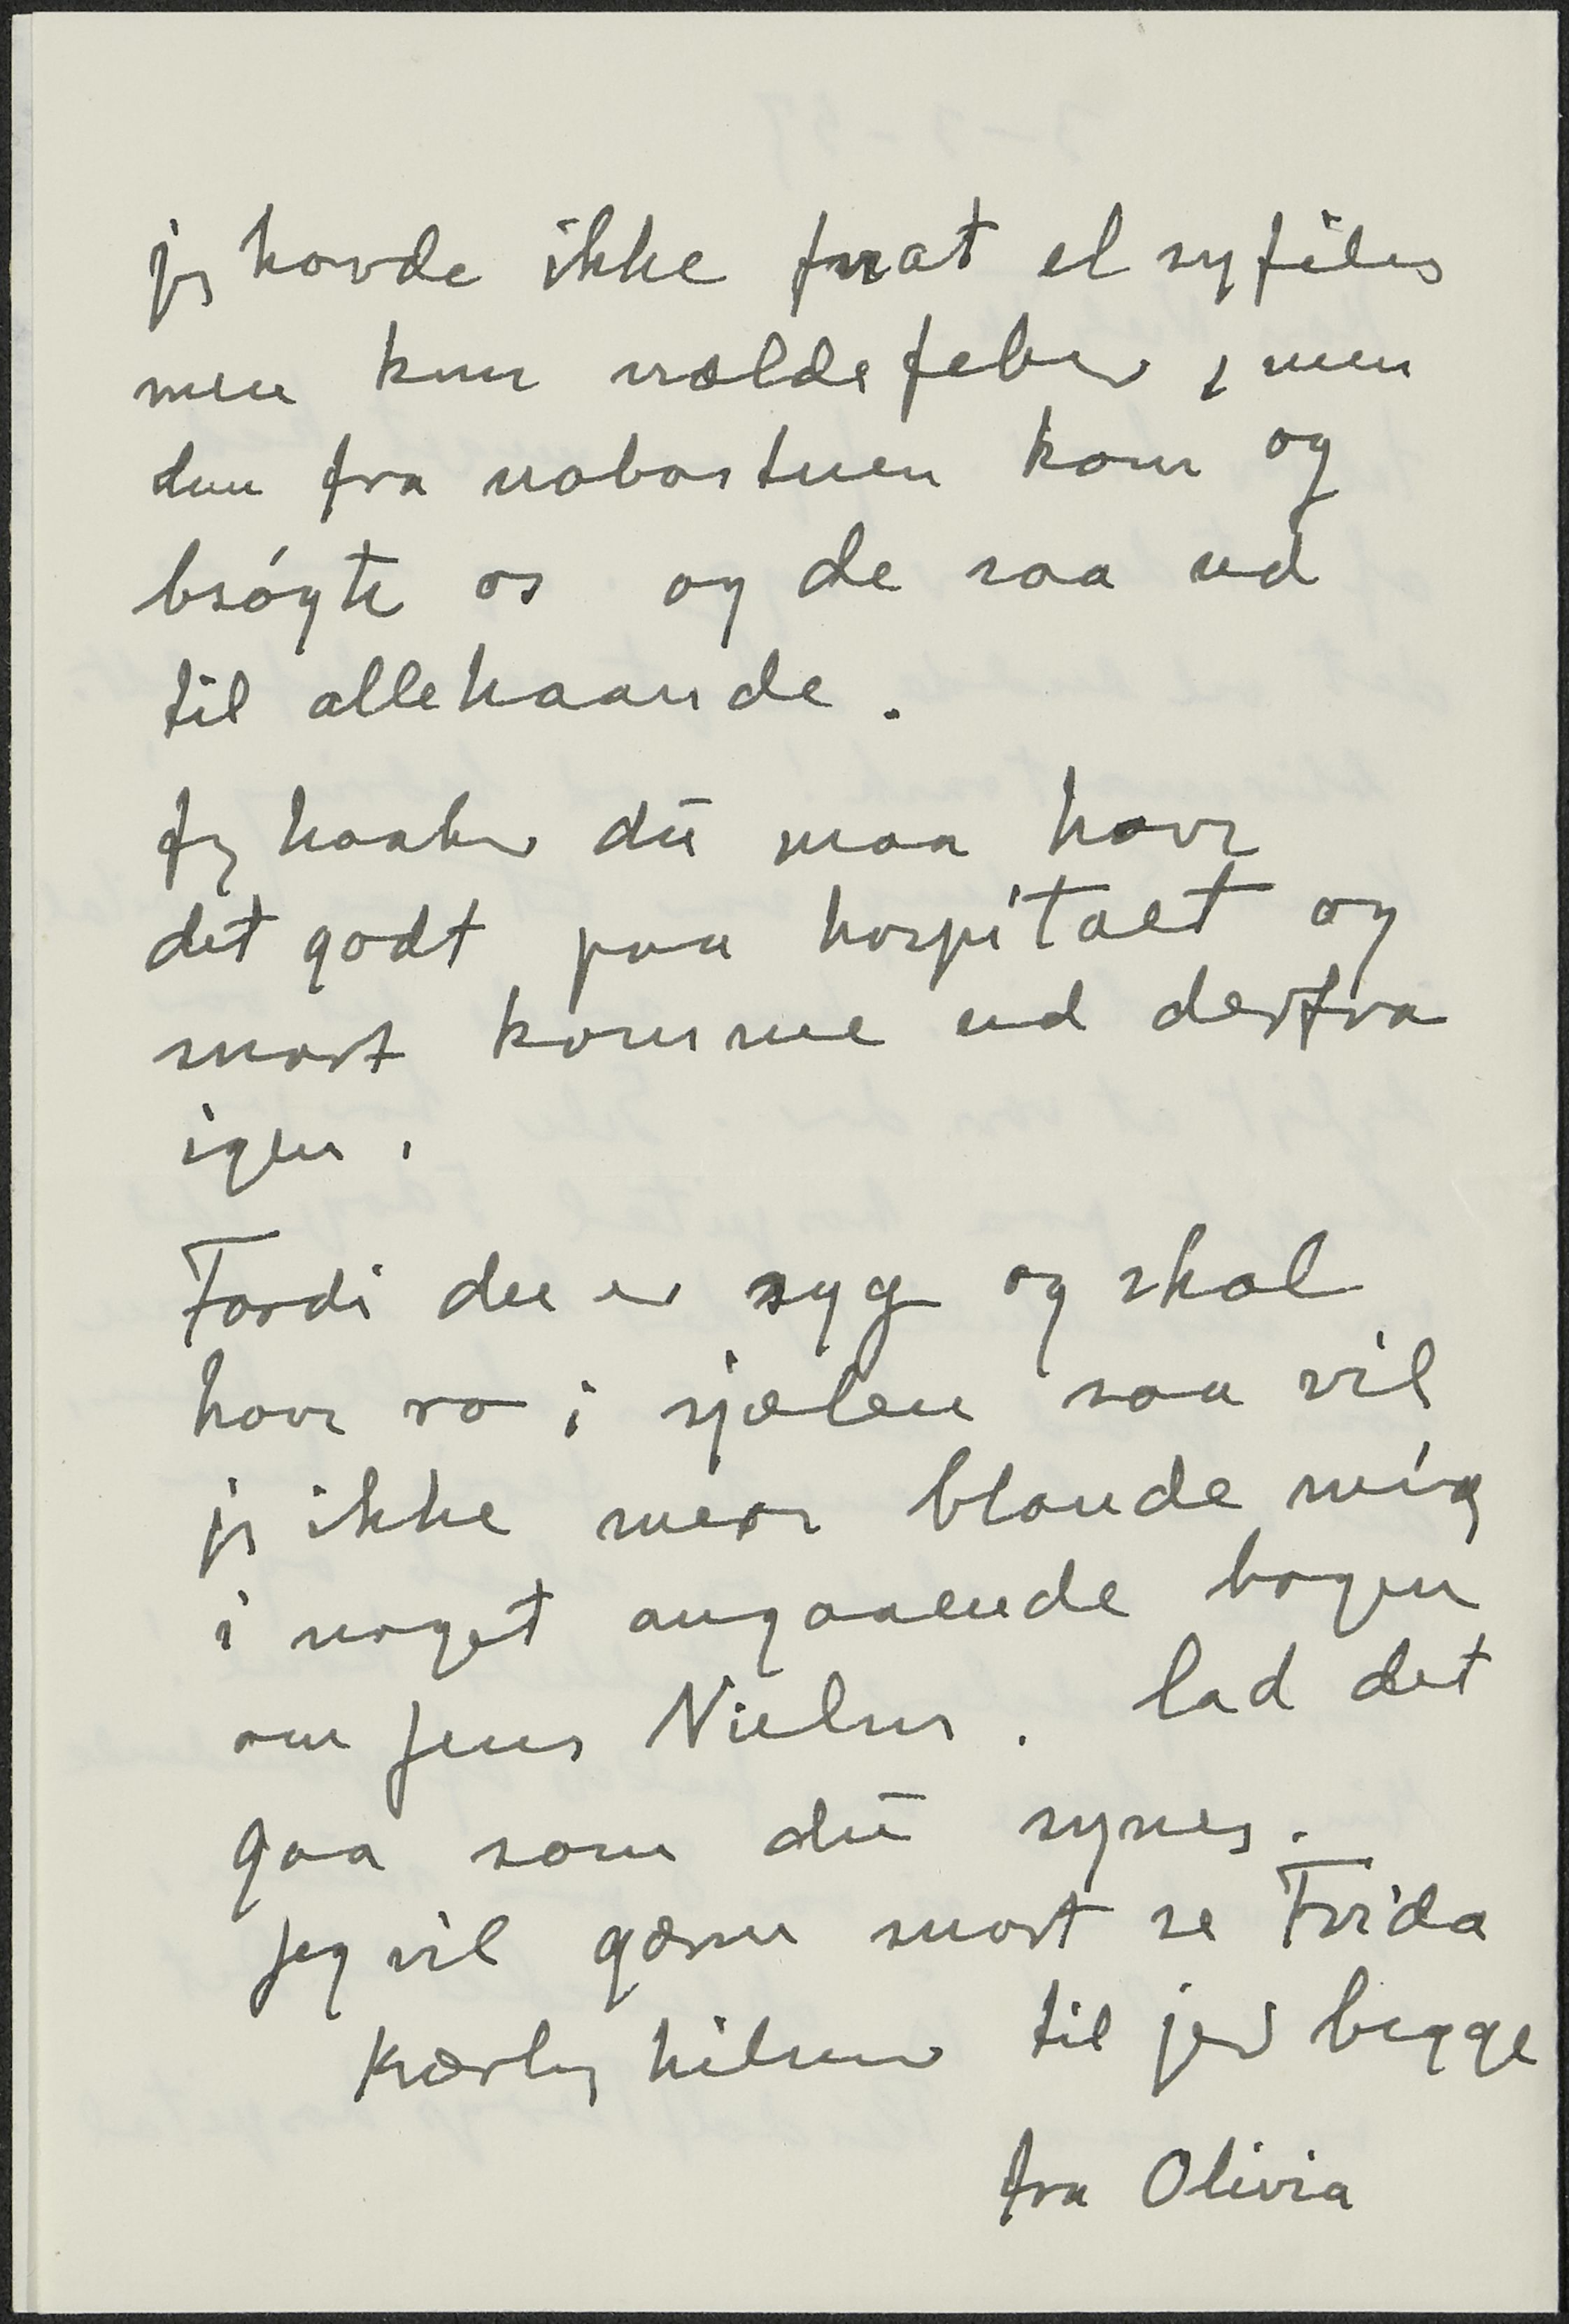 jeg havde ikke fnat el syfilis
men kun nældefeber, men
dem fra nabostuen kom og
bsøgte os og de saa ud
til allehaande.
Jeg haaber du maa have
det godt paa hospitalet og
snart komme ud derfra
igen.
Fordi du er syg og skal
have ro i sjælen saa vil
jeg ikke mere blande mig
i noget angaaende bogen
om Jens Nielsen. lad det
gaa som du synes.
Jeg vil gærne snart se Frida
Kærlig hilsen til jer begge
fra Olivia